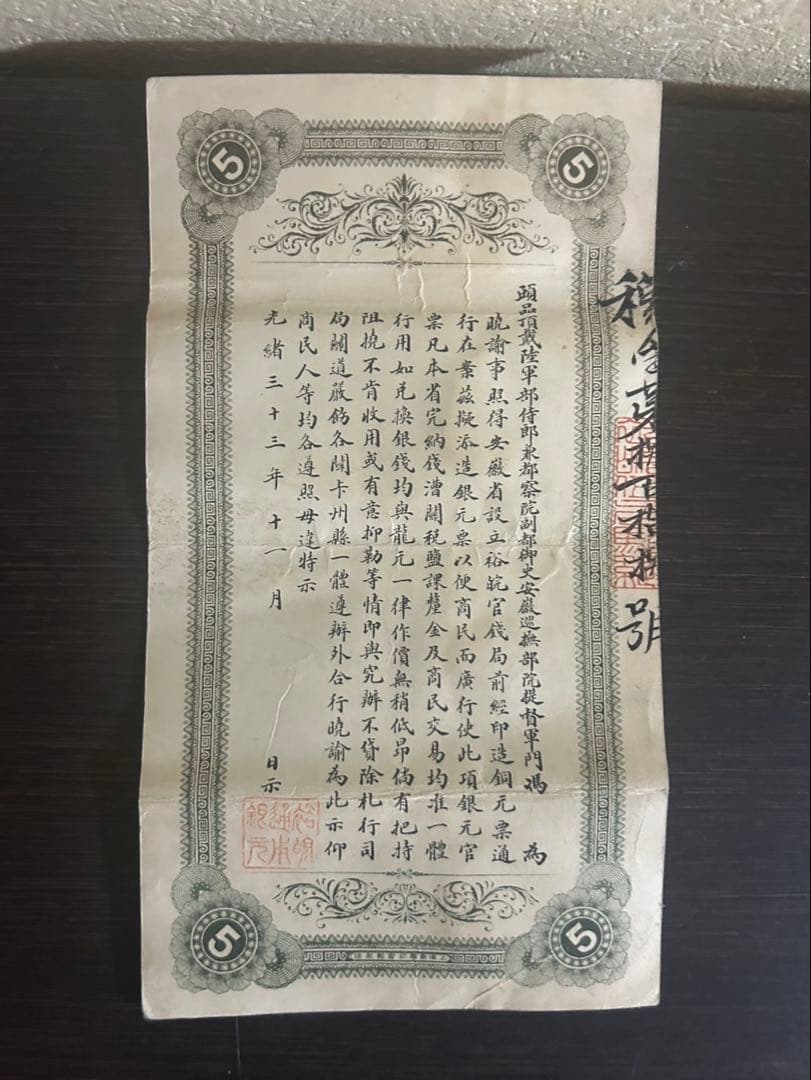 頭品頂戴陸軍部侍郎兼都察院副都御史安徽巡撫部院提督軍門馮 為
曉諭事照得安徽省設立裕皖官錢局前經印造銅元票通
行在案茲擬添造銀元票以便商民而廣行使此項銀元官
票凡本省完納錢漕關稅鹽課釐金及商民交易均准一體
行用如兌換銀錢均與龍元一律作價無稍低昂倘有把持
阻撓不肯收用或有意抑勒等情即與究辦不貸除札行司
局關道嚴飭各關卡州縣一體遵辦外合行曉諭為此示仰
商民人等均各遵照毋違特示
光緒三十三年十一月 日示
號
5
5
5
5